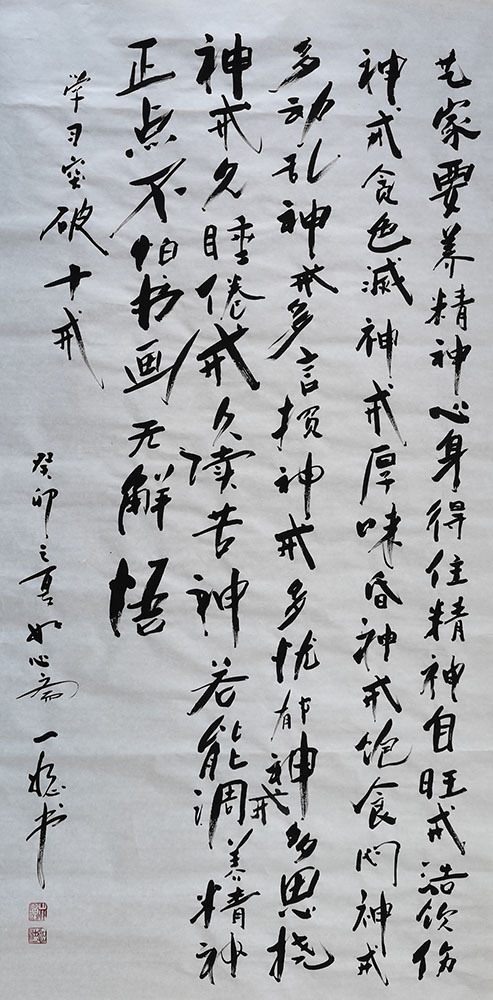 艺家要养精神心身得住精神自旺戒浩饮伤
神戒贪色灭神戒厚味昏神戒饱食闷神戒
多动乱神戒多言损神戒多忧郁神戒多思挠
神戒久睡倦戒久读苦神若能调养精神
正点不怕书画无解悟
学习突破十戒
癸卯之夏如心斋一 书